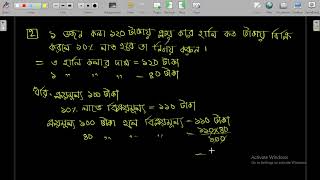 [2] ১ ডজন কলা ১২০ টাকায় ক্রয় করে হালি কত টাকায় বিক্রি
করলে ১০% লাভ হবে তা নির্ণয় করুন।
= ৩ হালি কলার দাম = ১২০ টাকা
১ " " " = ৪০ টাকা
ধরি, ক্রয়মূল্য ১০০ টাকা
১০% লাভে বিক্রয়মূল্য = ১১০ টাকা
ক্রয়মূল্য ১০০ টাকা হলে বিক্রয়মূল্য = ১১০ টাকা
৪০ " " " = ১১০×৪০
১০০
=
Activate Windows
Go to Settings to activate Windows.